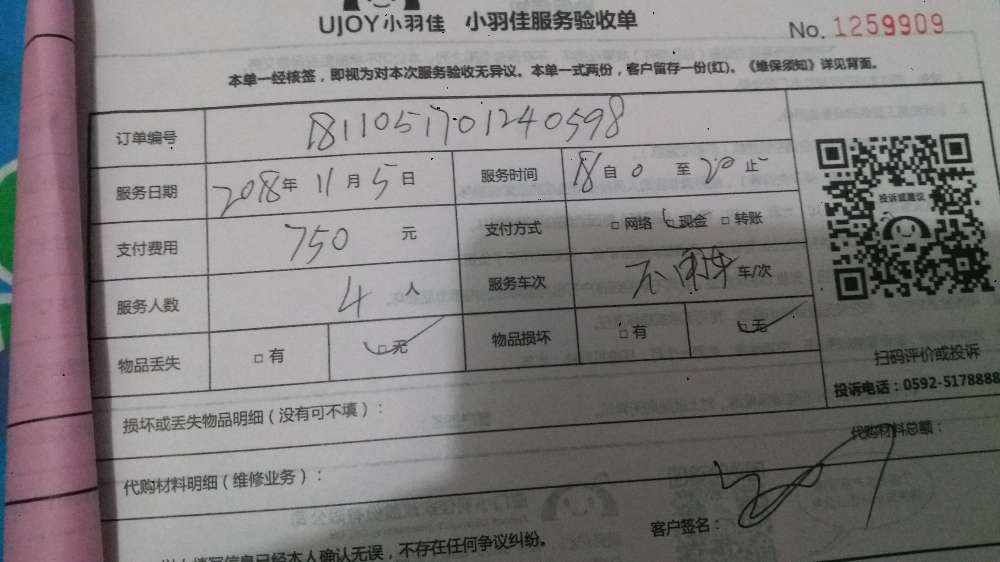 UJOY小羽佳 小羽佳服务验收单
No. 1259909
本单一经核签，即视为对本次服务验收无异议。本单一式两份，客户留存一份(红)。《维保须知》详见背面。
订单编号 1811051701240598
服务日期 2018年 11月 5日 服务时间 18自 0 至 20止
支付费用 750 元 支付方式 □网络 □现金 □转账
服务人数 4 人 服务车次 不用车 车/次
物品丢失 □有 □无 物品损坏 □有 □无
投诉或建议
扫码评价或投诉
投诉电话：0592-5178888
损坏或丢失物品明细（没有可不填）：
代购材料明细（维修业务）： 代购材料总额：
客户签名：
填写信息已经本人确认无误，不存在任何争议纠纷。